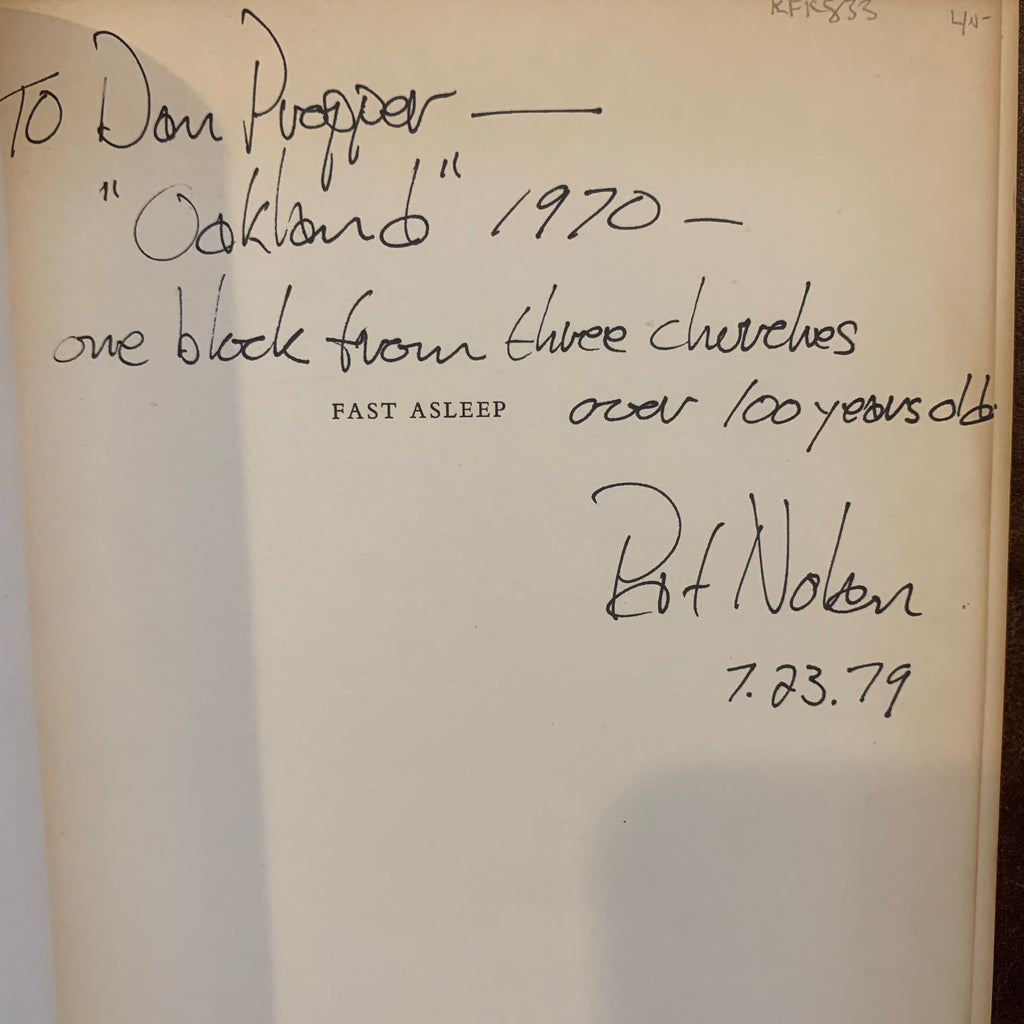 RFR533
4/N-
TO Dan Propper —
"Oakland" 1970 —
one block from three churches
FAST ASLEEP over 100 years old
Pat Nolan
7.23.79